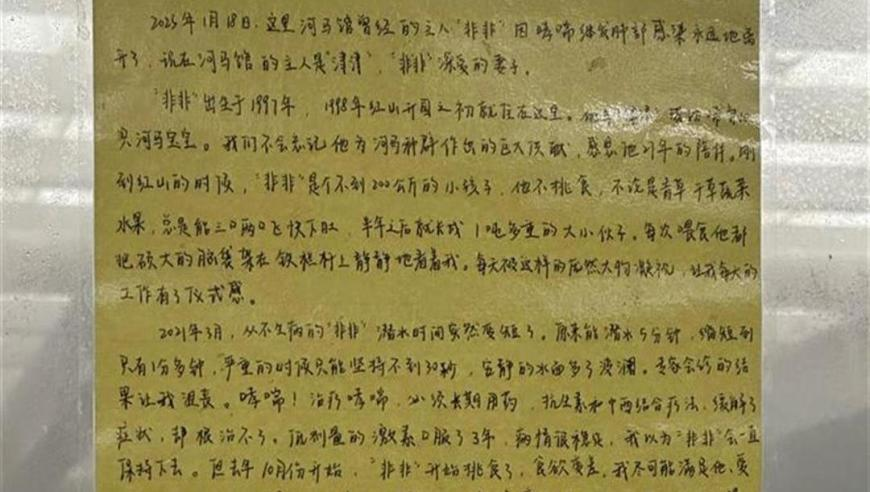 2025年1月18日，这里河马馆曾经的主人“非非”因哮喘继发肺部感染永远地离
开了，现在河马馆的主人是“津津”，“非非”深爱的妻子。
“非非”出生于1997年，1998年红山开园之初就住在这里。他与
只河马宝宝。我们不会忘记他为河马种群作出的巨大贡献，感恩他27年的陪伴。刚
到红山的时候，“非非”是个不到200公斤的小孩子，他不挑食，不论是青草干草蔬菜
水果，总是能三口两口飞快下肚，半年之后就长成1吨多重的大小伙子。每次喂食他都
把硕大的脑袋架在铁栏杆上静静地看着我。每天被这样的庞然大物凝视，让我每天的
工作有了仪式感。
2021年3月，从不生病的“非非”潜水时间突然变短了。原来能潜水5分钟，缩短到
只有1分多钟，严重的时候只能坚持不到30秒，安静的水面多了波澜。专家会诊的结
果让我沮丧。哮喘！治疗哮喘，必须长期用药，抗生素和中西结合疗法，缓解了
症状，却根治不了。低剂量的激素口服了3年，病情很稳定，我以为“非非”会一直
保持下去。但去年10月份开始，“非非”开始挑食了，食欲变差。我不可能满足他，要